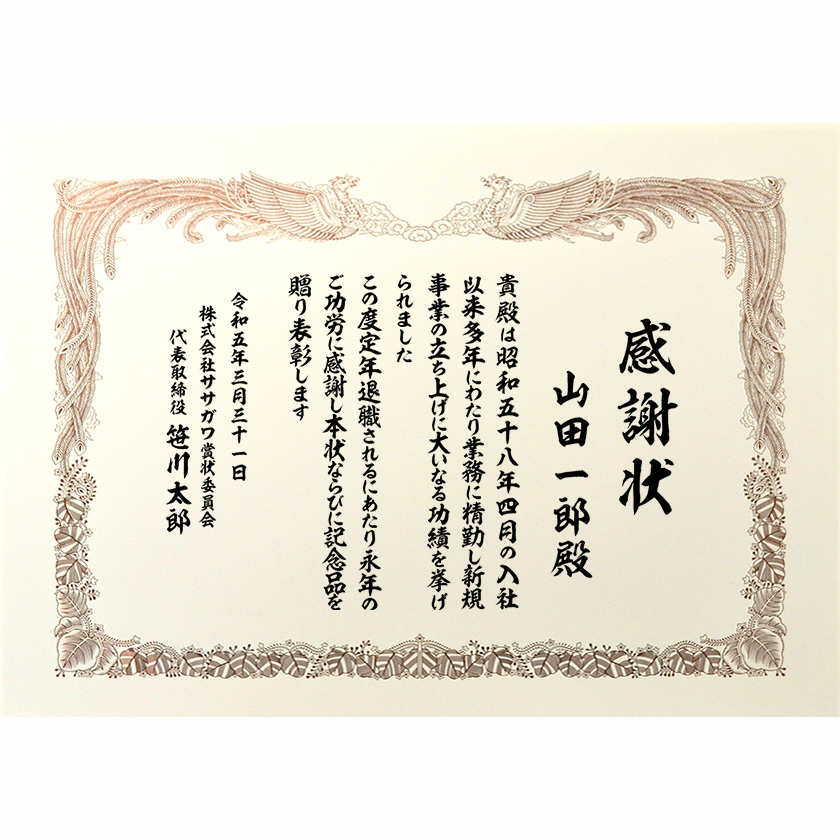 感謝状
山田一郎殿
貴殿は昭和五十八年四月の入社
以来多年にわたり業務に精勤し新規
事業の立ち上げに大いなる功績を挙げ
られました
この度定年退職されるにあたり永年の
ご功労に感謝し本状ならびに記念品を
贈り表彰します
令和五年三月三十一日
株式会社ササガワ賞状委員会
代表取締役 笹川太郎